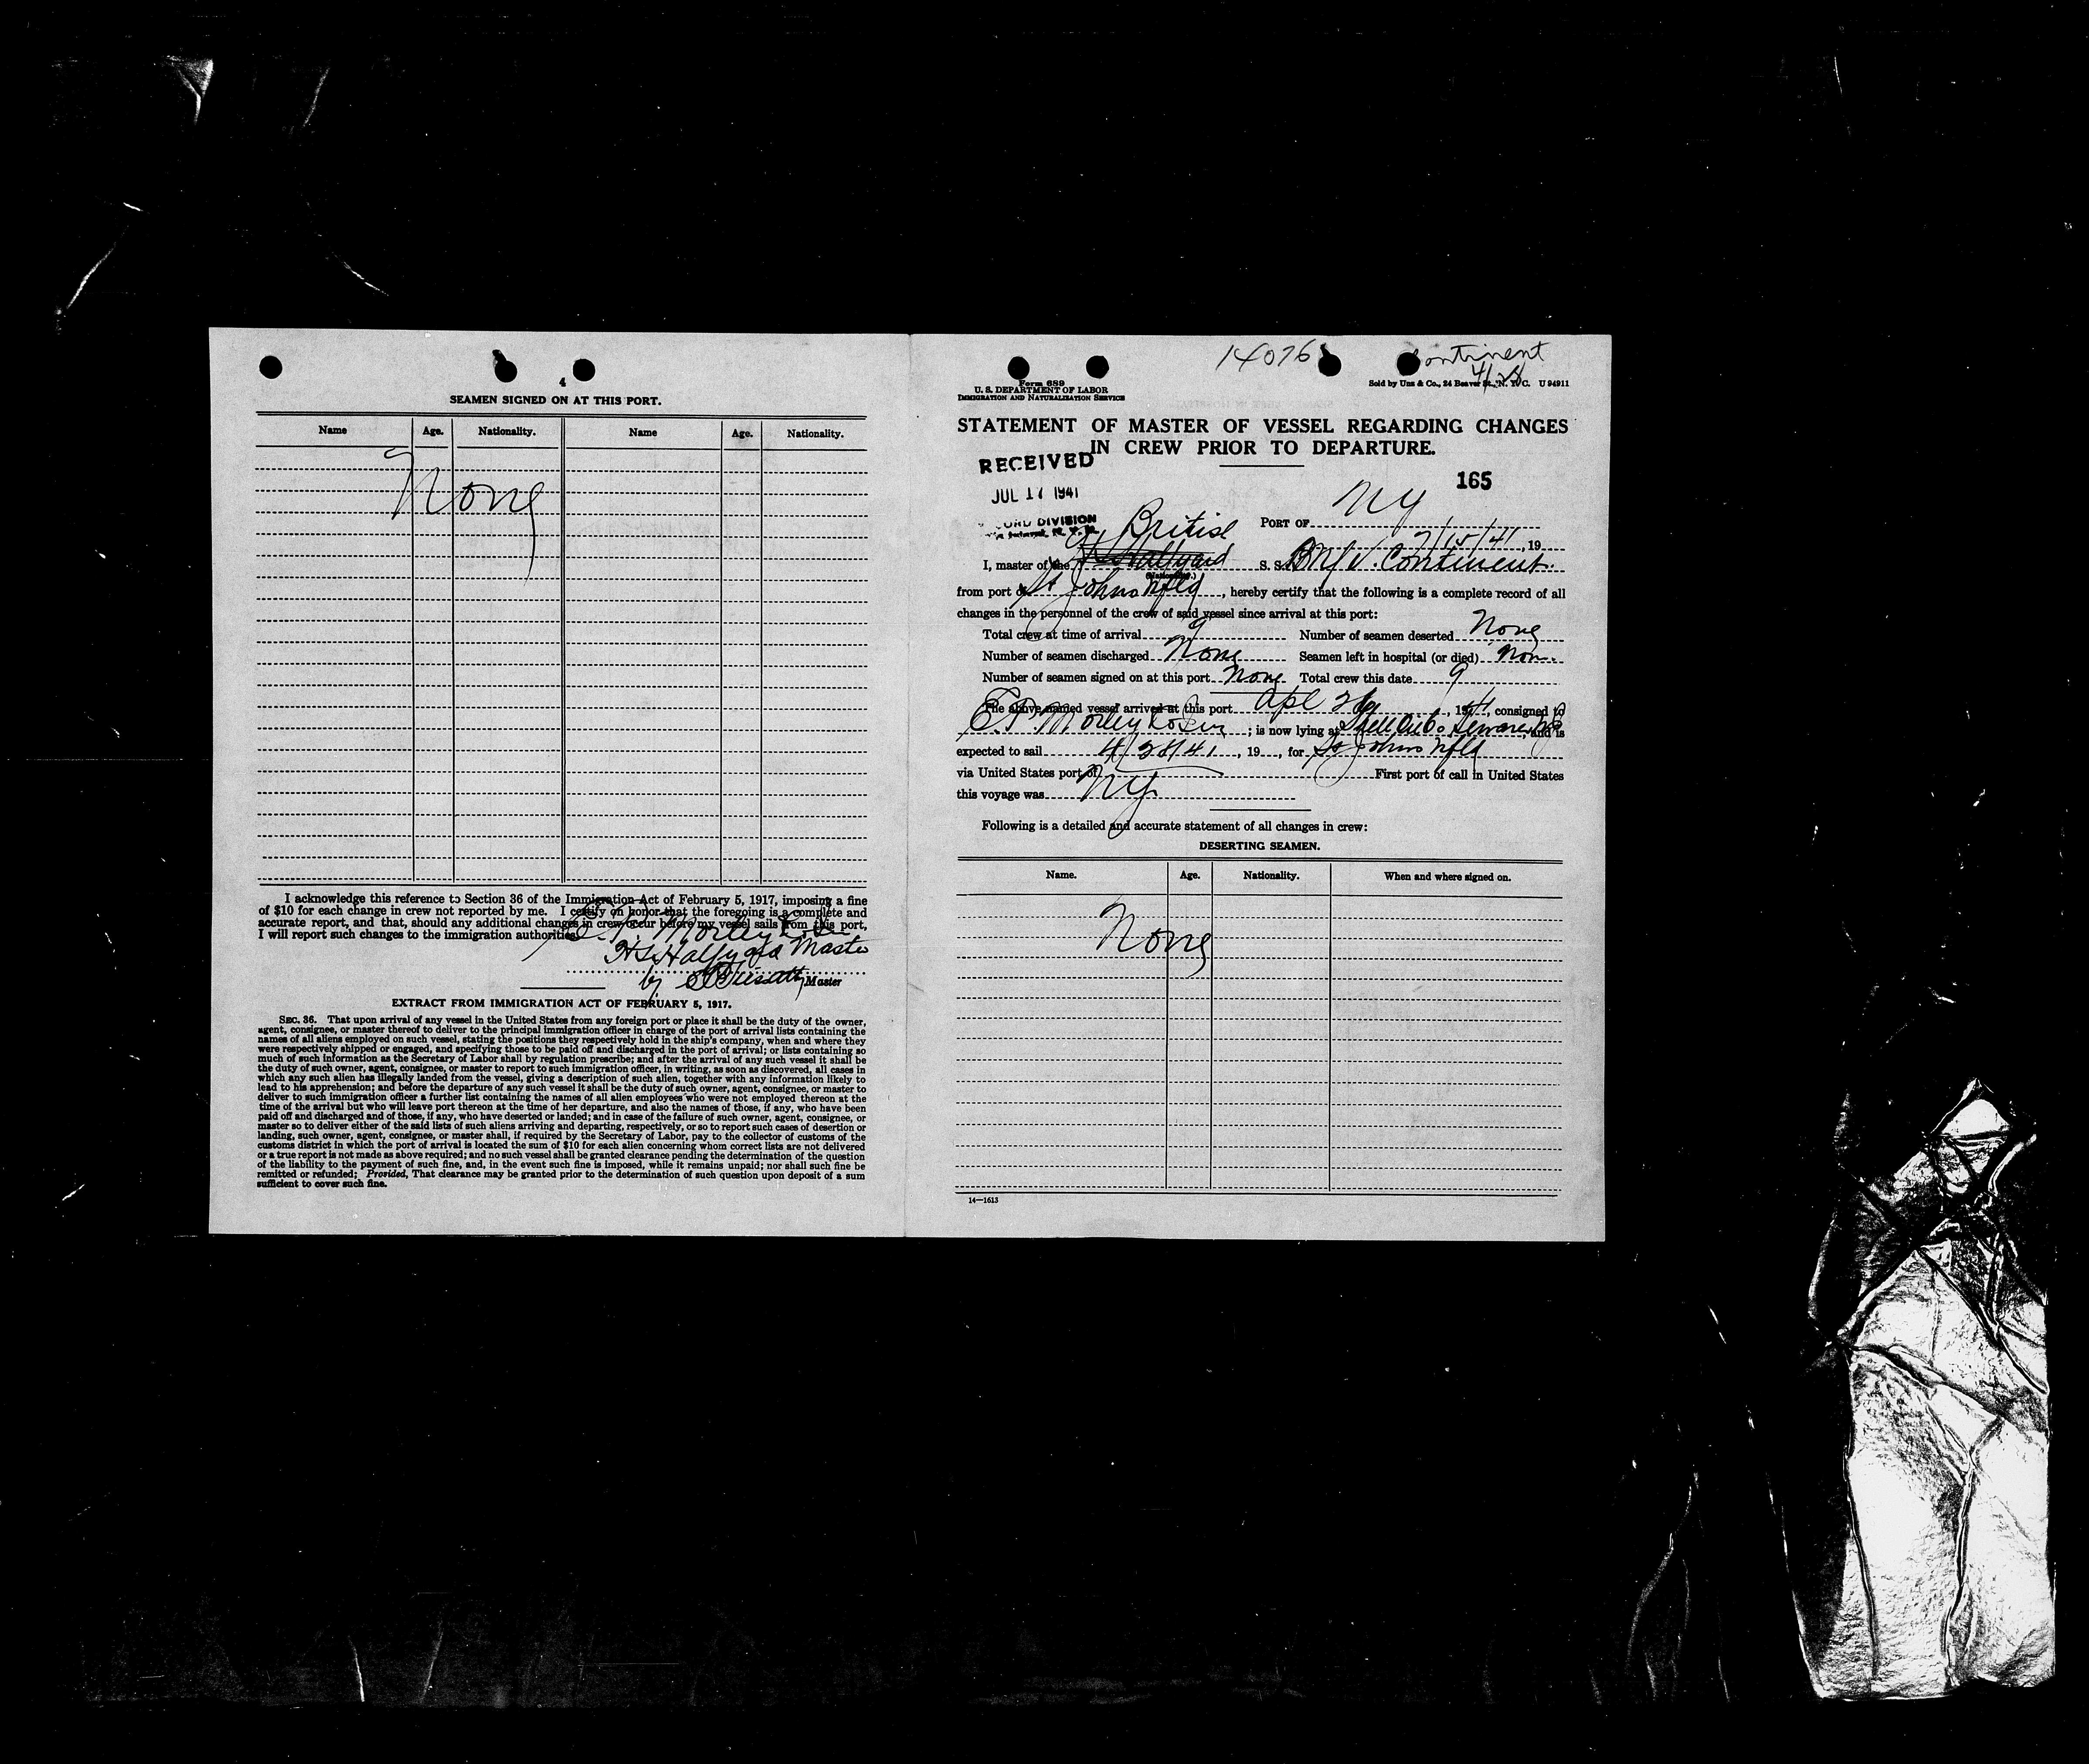 4
SEAMEN SIGNED ON AT THIS PORT.
Name Age. Nationality. Name Age. Nationality.
None
I acknowledge this reference to Section 36 of the Immigration Act of February 5, 1917, imposing a fine
of $10 for each change in crew not reported by me. I certify on honor that the foregoing is a complete and
accurate report, and that, should any additional changes in crew occur before my vessel sails from this port,
I will report such changes to the immigration authorities.
E. P. Morley
Halfyard Master
by Master
EXTRACT FROM IMMIGRATION ACT OF FEBRUARY 5, 1917.
SEC. 36. That upon arrival of any vessel in the United States from any foreign port or place it shall be the duty of the owner,
agent, consignee, or master thereof to deliver to the principal immigration officer in charge of the port of arrival lists containing the
names of all aliens employed on such vessel, stating the positions they respectively hold in the ship's company, when and where they
were respectively shipped or engaged, and specifying those to be paid off and discharged in the port of arrival; or lists containing so
much of such information as the Secretary of Labor shall by regulation prescribe; and after the arrival of any such vessel it shall be
the duty of such owner, agent, consignee, or master to report to such immigration officer, in writing, as soon as discovered, all cases in
which any such alien has illegally landed from the vessel, giving a description of such alien, together with any information likely to
lead to his apprehension; and before the departure of any such vessel it shall be the duty of such owner, agent, consignee, or master to
deliver to such immigration officer a further list containing the names of all alien employees who were not employed thereon at the
time of the arrival but who will leave port thereon at the time of her departure, and also the names of those, if any, who have been
paid off and discharged and of those, if any, who have deserted or landed; and in case of the failure of such owner, agent, consignee, or
master so to deliver either of the said lists of such aliens arriving and departing, respectively, or so to report such cases of desertion or
landing, such owner, agent, consignee, or master shall, if required by the Secretary of Labor, pay to the collector of customs of the
customs district in which the port of arrival is located the sum of $10 for each alien concerning whom correct lists are not delivered
or a true report is not made as above required; and no such vessel shall be granted clearance pending the determination of the question
of the liability to the payment of such fine, and, in the event such fine is imposed, while it remains unpaid; nor shall such fine be
remitted or refunded; Provided, That clearance may be granted prior to the determination of such question upon deposit of a sum
sufficient to cover such fine.
14076 Continent
4/28
Form 689
U. S. DEPARTMENT OF LABOR
IMMIGRATION AND NATURALIZATION SERVICE
Sold by Unz & Co., 24 Beaver St., N. Y. C. U 94911
STATEMENT OF MASTER OF VESSEL REGARDING CHANGES
IN CREW PRIOR TO DEPARTURE.
RECEIVED
JUL 17 1941
DIVISION
165
PORT OF NY
7/15/41, 19
British
I, master of the Halfyard S. S. Continent.
(Nationality.)
from port of St Johns Nfld, hereby certify that the following is a complete record of all
changes in the personnel of the crew of said vessel since arrival at this port:
Total crew at time of arrival 9 Number of seamen deserted None
Number of seamen discharged None Seamen left in hospital (or died) Non
Number of seamen signed on at this port None Total crew this date 9
The above-named vessel arrived at this port Apl 26, 1941, consigned to
E. P. Morley Co Inc; is now lying at Shell Oil Co Sewaren NJ, and is
expected to sail 4/28/41, 19, for St Johns Nfld
via United States port of First port of call in United States
this voyage was NY
Following is a detailed and accurate statement of all changes in crew:
DESERTING SEAMEN.
Name. Age. Nationality. When and where signed on.
None
14—1613